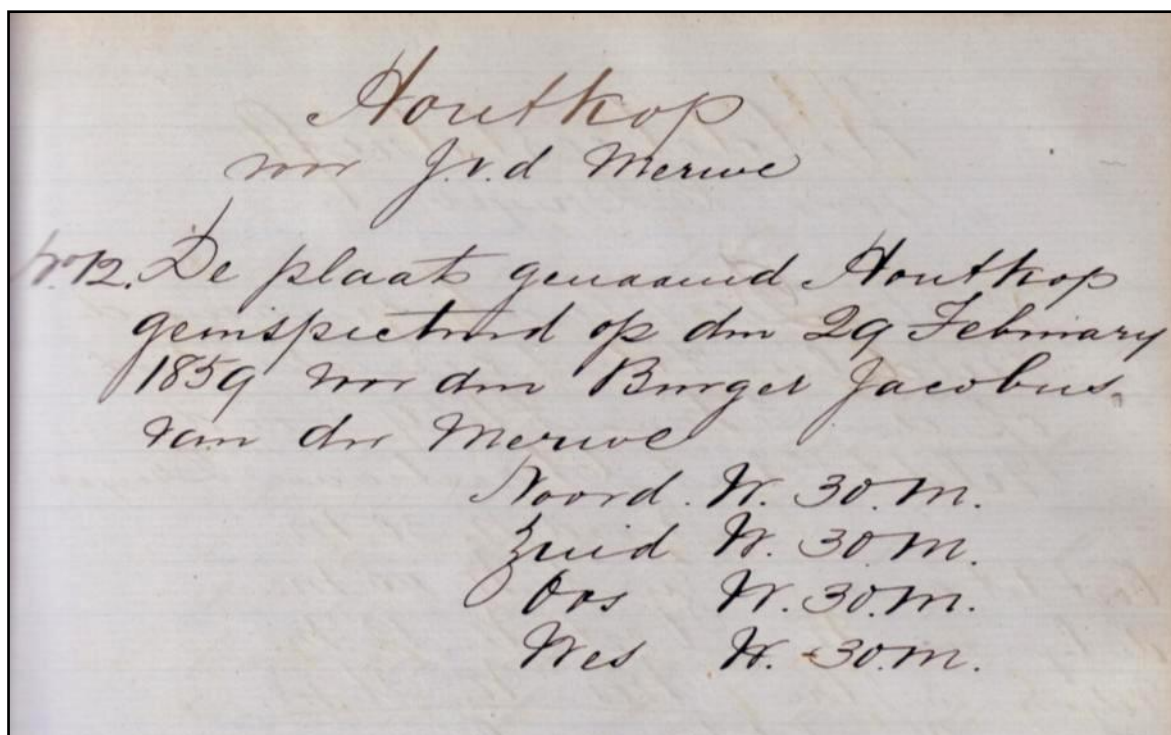 Houtkop
voor J.v.d Merwe
No 12. De plaats genaamd Houtkop
geinspecteerd op den 29 February
1859 voor den Burger Jacobus
van der Merwe
Noord. W. 30.M.
Zuid W. 30.M.
Oos W. 30.M.
Wes W. 30.M.